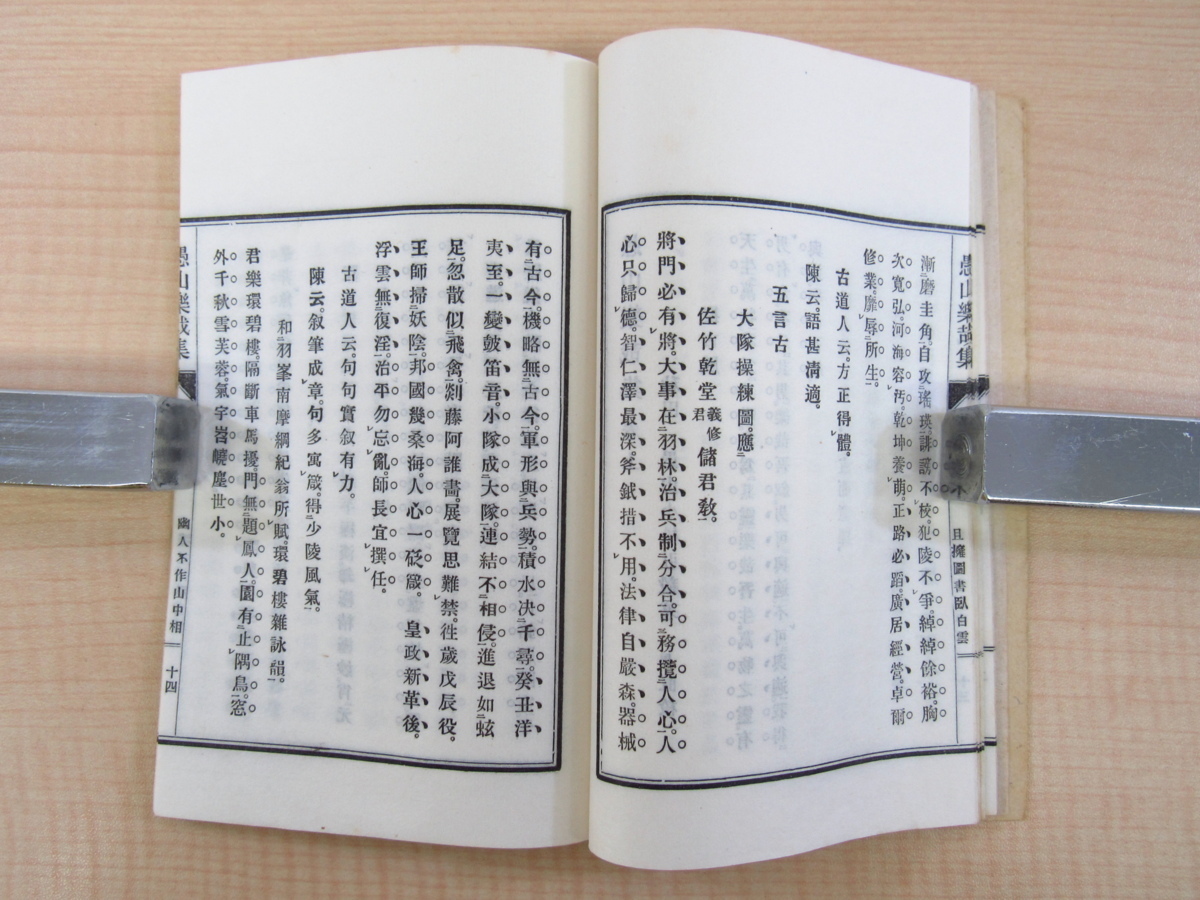 且擁圖書臥白雲
漸磨圭角。自攻瑤瑛。誹謗不校。犯陵不爭。綽綽餘裕。胸
次寬弘。河海容汚。乾坤養萌。正路必蹈。廣居經營。卓爾
修業。靡辱所生。
古道人云。方正得體。
陳云。語甚清適。
五言古
大隊操練圖。應
佐竹乾堂義修君儲君敎。
將門必有將。大事在羽林。治兵制分合。可務攬人心。人
心只歸德。智仁澤最深。斧鉞措不用。法律自嚴森。器械
有古今。機略無古今。軍形與兵勢。積水決千尋。癸丑洋
夷至。一變皷笛音。小隊成大隊。連結不相侵。進退如蚿
足。忽散似飛禽。剡藤阿誰畵。展覽思難禁。徃歲戊辰役。
王師掃妖陰。邦國幾桑海人心一砭箴。 皇政新革後。
浮雲無復淫。治平勿忘亂。師長宜撰任。
古道人云。句句實叙有力。
陳云。叙筆成章。句多寓箴。得少陵風氣。
和羽峯南摩綱紀翁所賦。環碧樓雜詠韻。
君樂環碧樓。隔斷車馬擾。門無題鳳人。園有止隅鳥。窓
外千秋雪芙蓉。氣宇嵱嶢塵世小。
愚山樂哉集
幽人不作山中相
十四